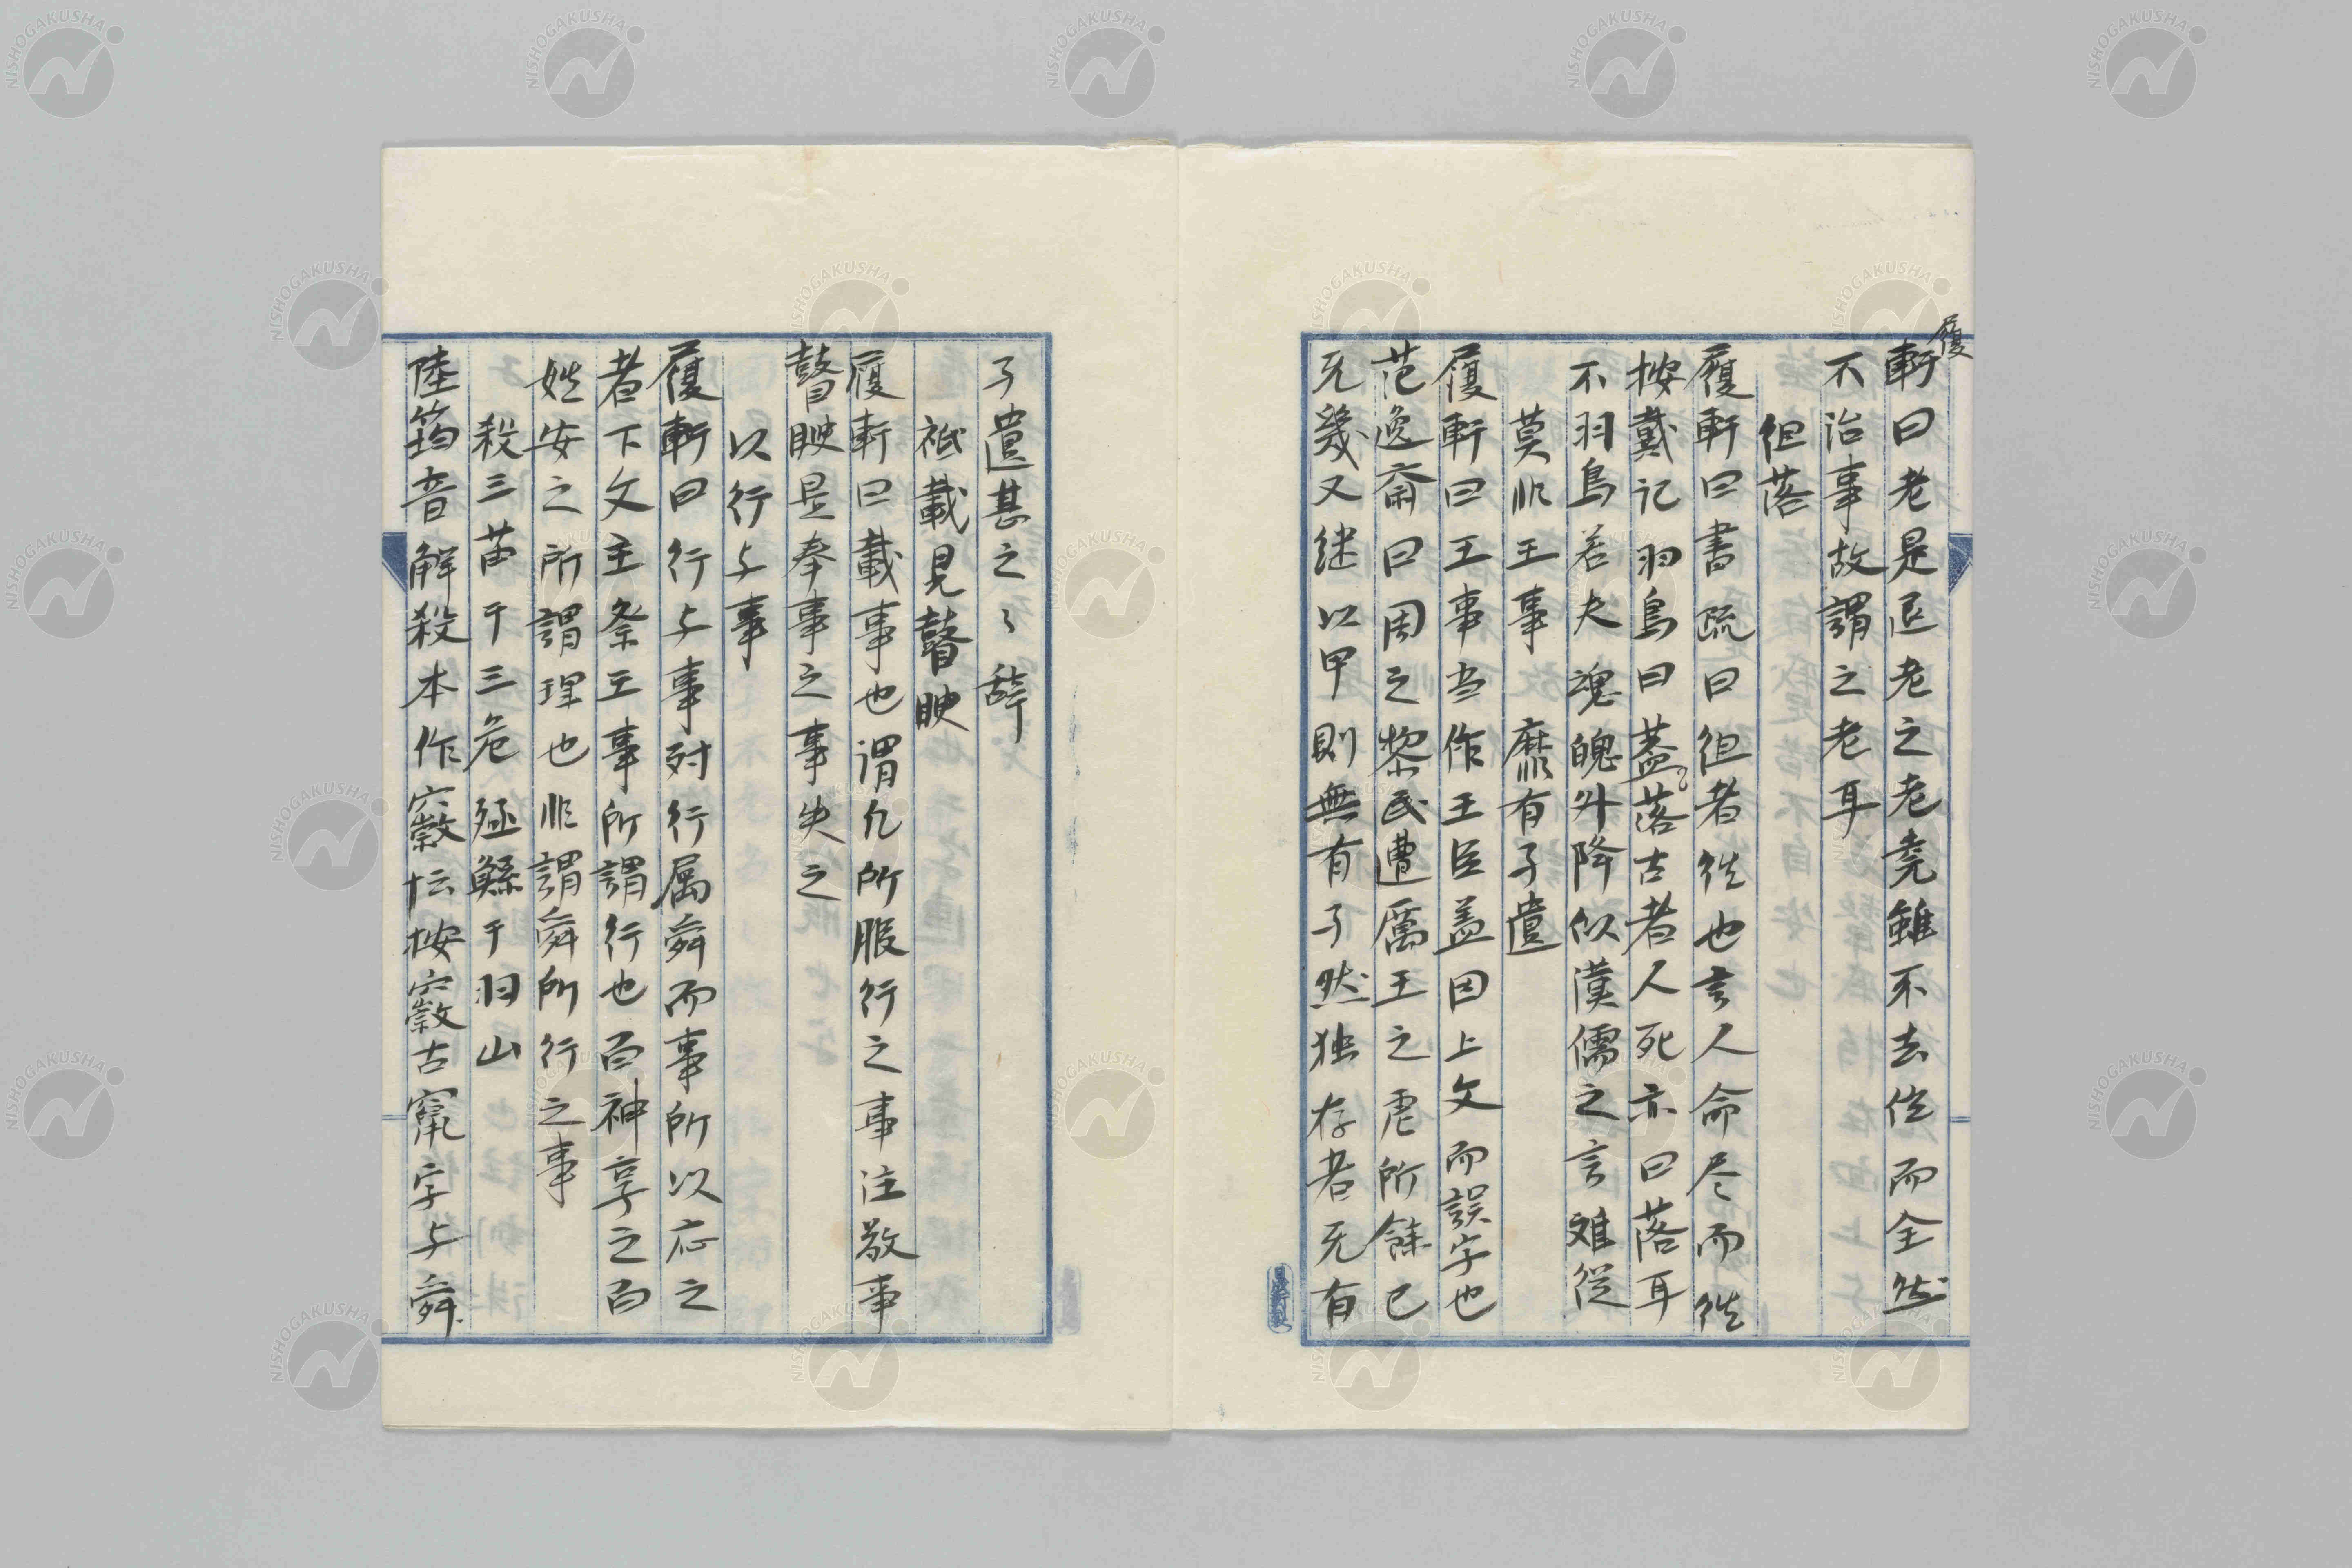 履
軒曰老是退老之老堯雖不去位而全然
不治事故謂之老耳
徂落
履軒曰書疏曰徂者徃也言人命尽而徃
按戴記羽鳥曰蓋落古者人死亦曰落耳
不羽鳥若夫魂魄升降似漢儒之言难從
莫非王事 靡有孑遺
履軒曰王事当作王臣盖因上文而誤字也
范逸斎曰周之黎民遭厲王之虐所餘已
无幾又継以甲則無有孑然独存者无有
孑遺甚之之辞
祗載見瞽瞍
履軒曰載事也谓凡所服行之事注敬事
瞽瞍是奉事之事失之
以行与事
履軒曰行与事対行属舜而事所以応之
者下文主祭主事所謂行也百神享之百
姓安之所謂理也非謂舜所行之事
殺三苗于三危 殛鯀于羽山
陸筠音解殺本作
按
古竄字与舜
NISHOGAKUSHA